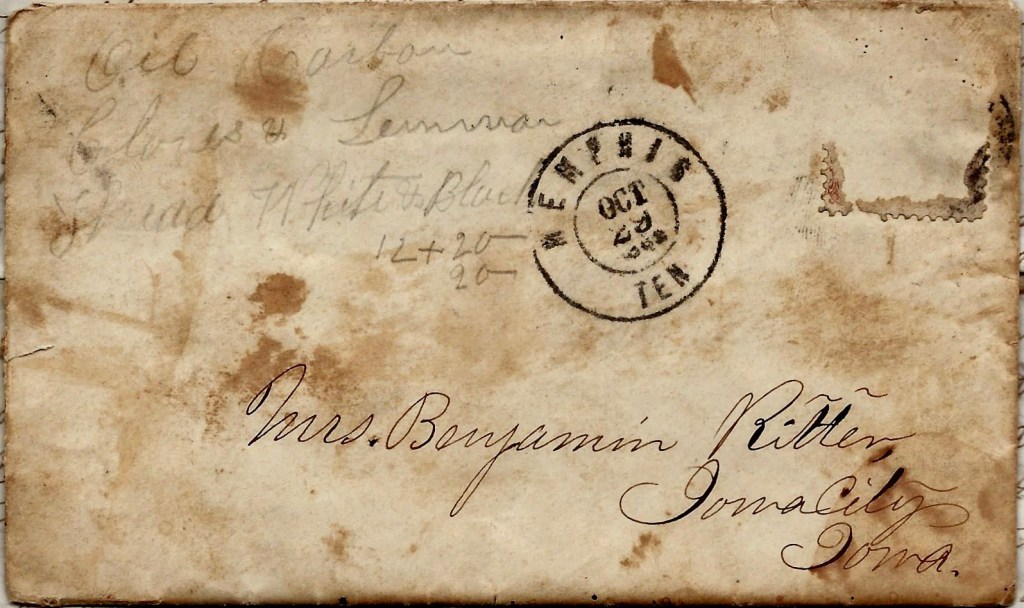 Oil Carbon
Cloves &
Thread White & Black
12 + 20
20
MEMPHIS
OCT
29
TEN
Mrs. Benjamin Ritter,
Iowa City
Iowa.